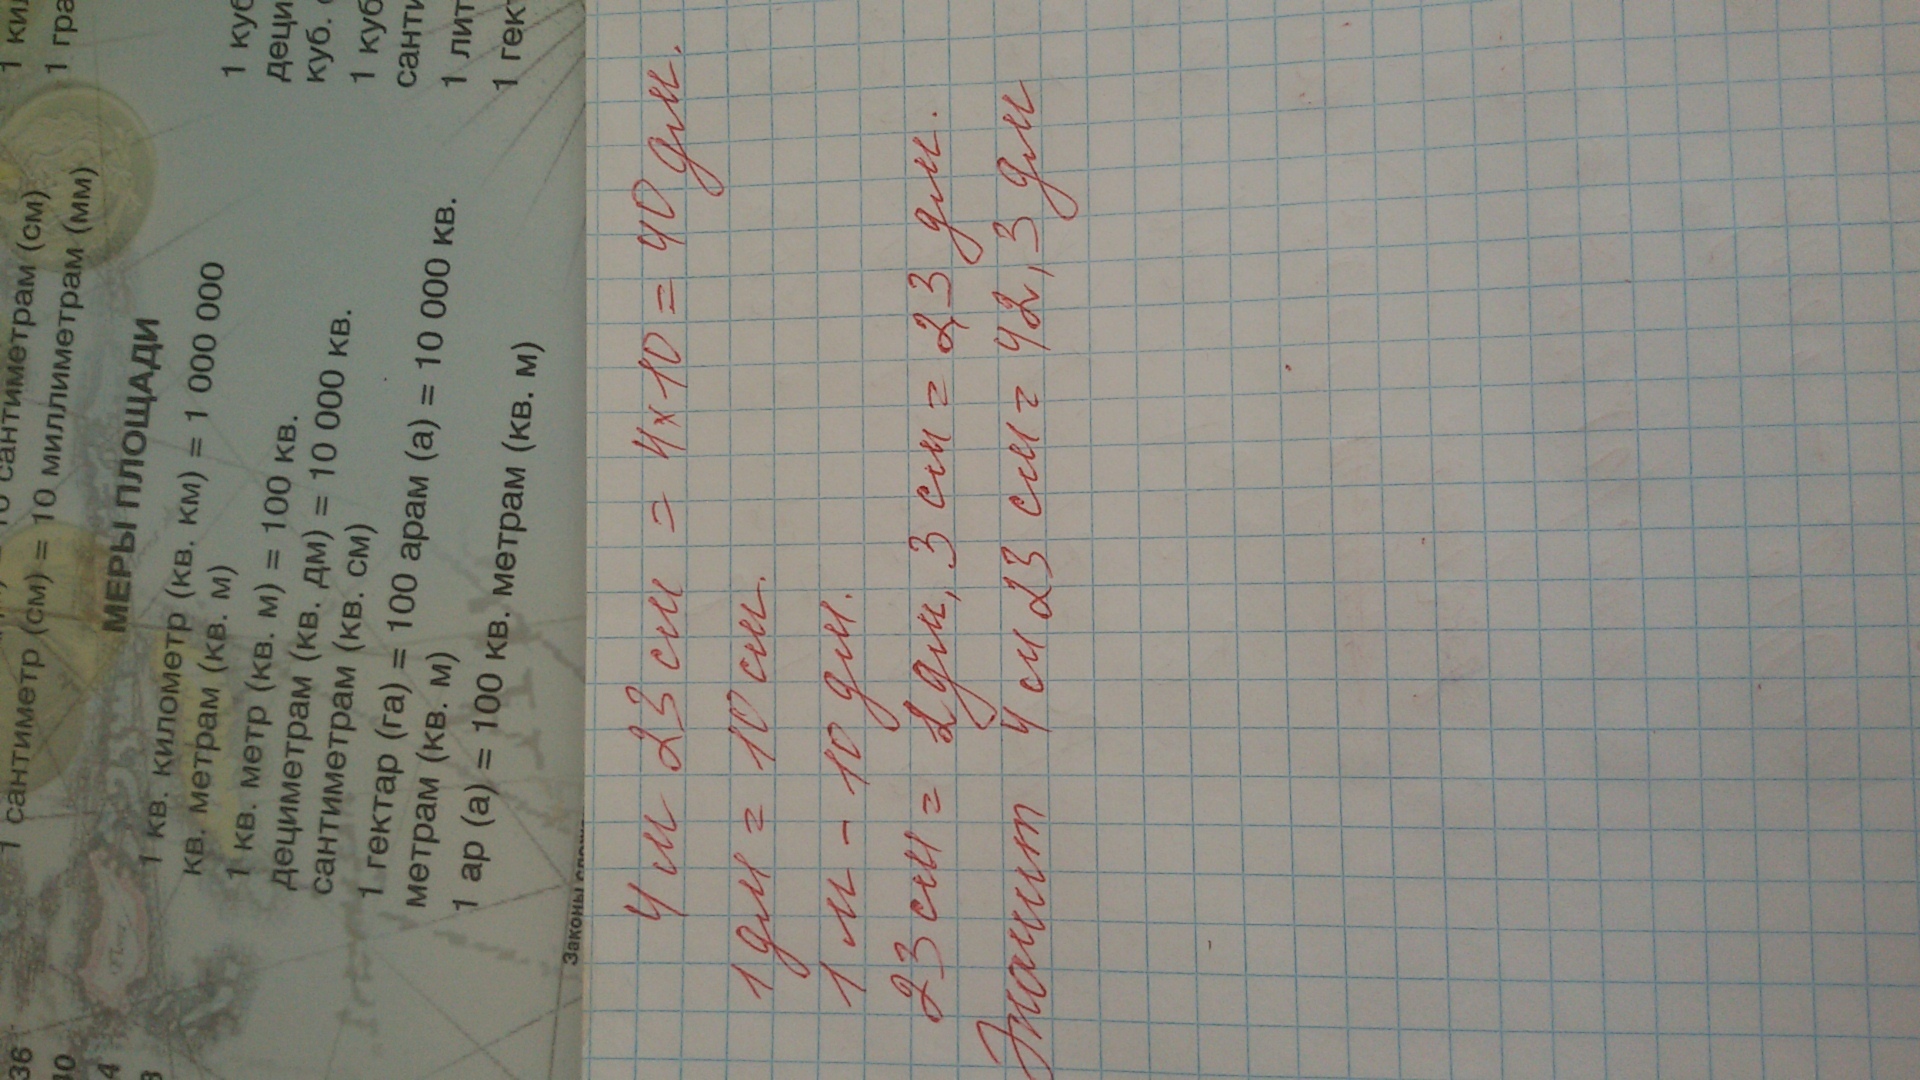 1 сантиметр (см) = 10 миллиметрам (мм)
МЕРЫ ПЛОЩАДИ
1 кв. километр (кв. км) = 1 000 000
кв. метрам (кв. м)
1 кв. метр (кв. м) = 100 кв.
дециметрам (кв. дм) = 10 000 кв.
сантиметрам (кв. см)
1 гектар (га) = 100 арам (а) = 10 000 кв.
метрам (кв. м)
1 ар (а) = 100 кв. метрам (кв. м)
1 куб
деци
куб.
1 куб
санти
1 лит
1 гект
Законы
4 м 23 см = 4×10 = 40 дм.
1 дм = 10 см.
1 м - 10 дм.
23 см = 2 дм, 3 см = 2,3 дм.
Значит 4 см 23 см = 42,3 дм